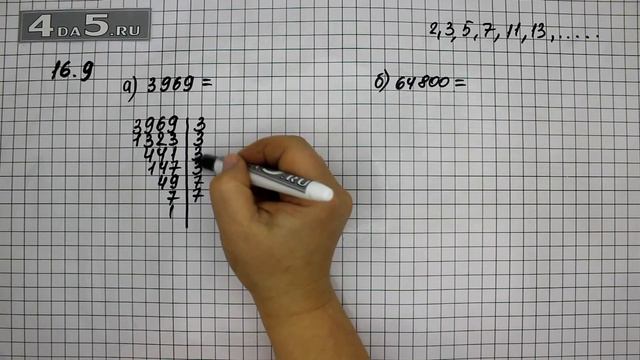 4DA5.RU
2, 3, 5, 7, 11, 13, .....
16.9
а) 3969 =
б) 64800 =
3969 | 3
1323 | 3
441 | 3
147 | 3
49 | 7
7 | 7
1 |